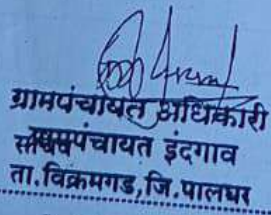 ग्रामपंचायत अधिकारी
ग्रामपंचायत इंदगाव
ता.विक्रमगड,जि.पालघर